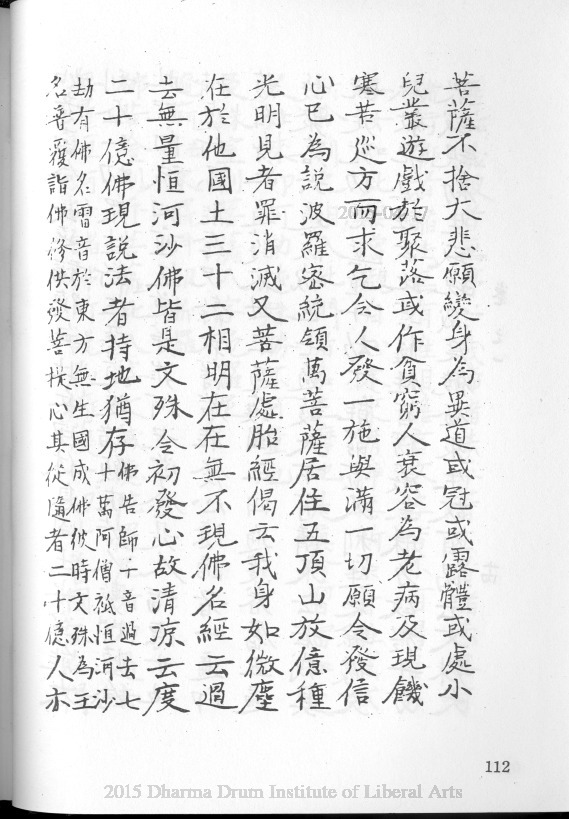 菩薩不捨大悲願變身為異道或冠或露體或處小
兒叢遊戲於聚落或作貧窮人衰容為老病及現饑
寒苦巡方而求乞令人發一施與滿一切願令發信
心已為說波羅密統領萬菩薩居住五頂山放億種
光明見者罪消滅又菩薩處胎經偈云我身如微塵
在於他國土三十二相明在在無不現佛名經云過
去無量恒河沙佛皆是文殊令初發心故清凉云度
二十億佛現說法者持地猶存佛告師子音過去七
十萬阿僧祇恒河沙
劫有佛名雷音於東方無生國成佛彼時文殊為王
名普覆詣佛修供發菩提心其從隨者二十億人亦
112
2015 Dharma Drum Institute of Liberal Arts